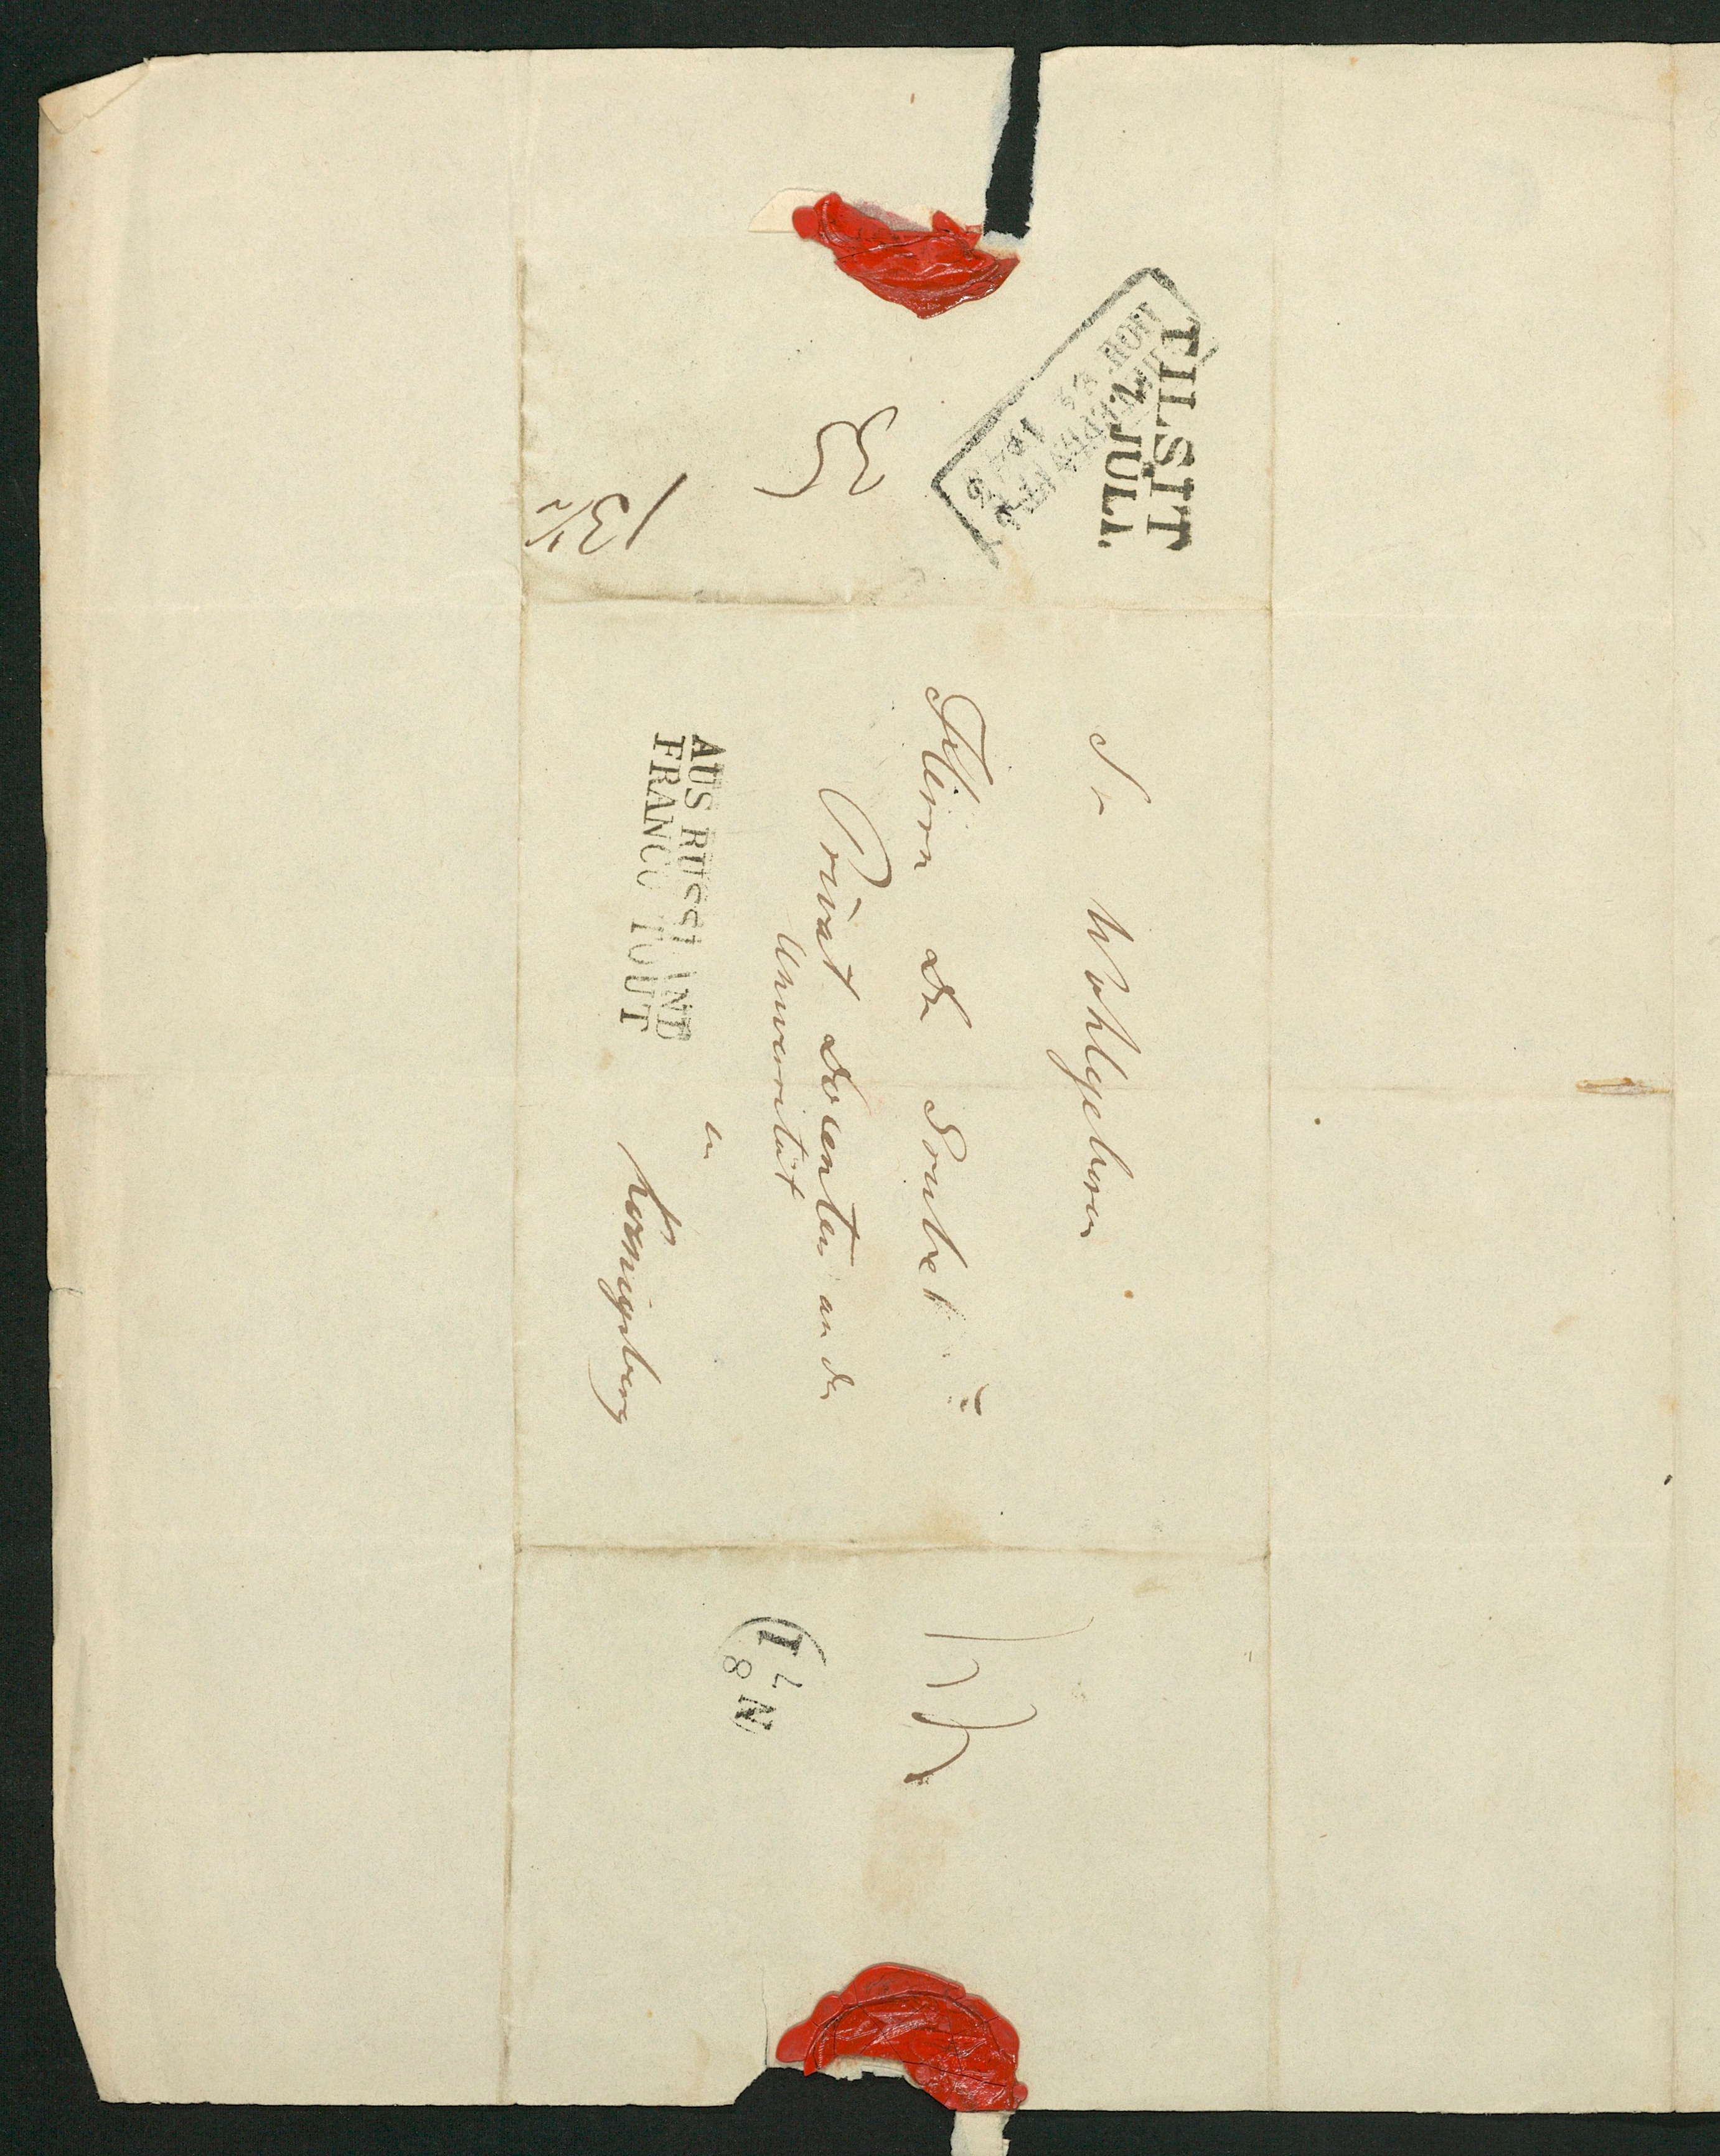 TILSIT
7. JULI.
35
13½
Sr Wohlgeboren
Herrn Dr Sonbet
Privat Docenten an der
Universitæt
in
Kœnigsberg
AUS RUSSLAND
FRANCO TOUT
N 1
8